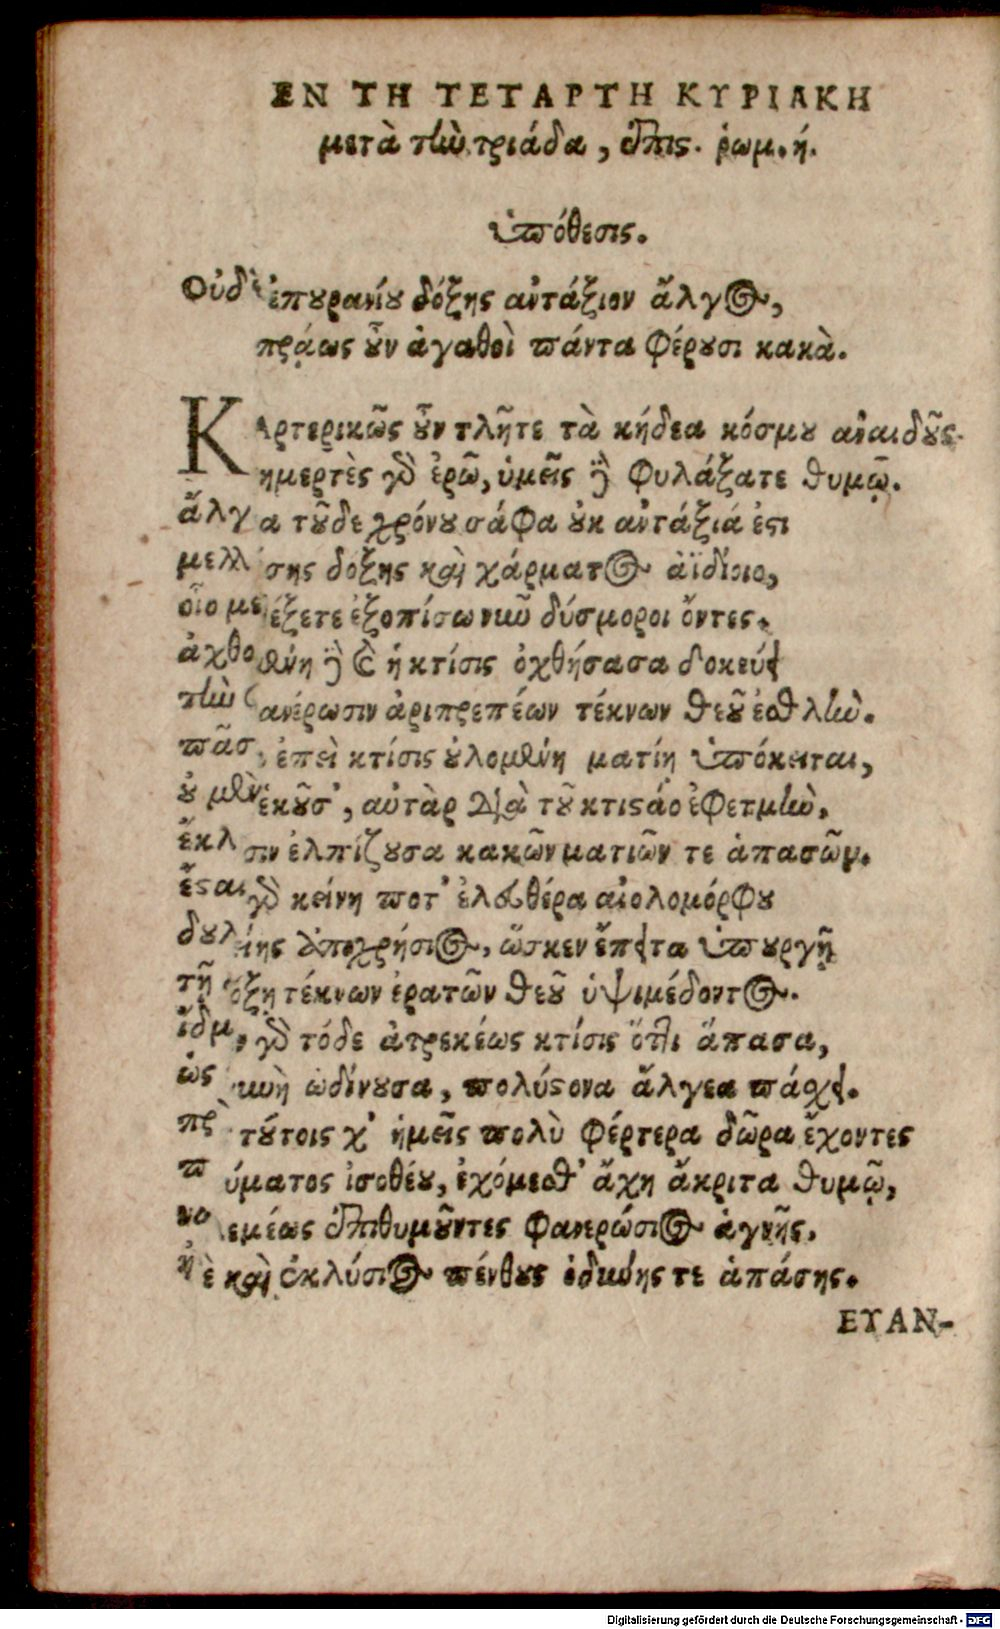 ΕΝ ΤΗ ΤΕΤΑΡΤΗ ΚΥΡΙΑΚΗ
μετὰ τὴν τριάδα, ἐπις. ῥωμ. ή.
ὑπόθεσις.
Οὐδ' ἐπουρανίου δόξης ἀντάξιον ἄλγος,
πρᾴως οὖν ἀγαθοὶ πάντα φέρουσι κακὰ.
ΚΑρτερικῶς οὖν τλῆτε τὰ κήδεα κόσμου ἀναιδοῦς.
νημερτὲς γὸ ἐρῶ, ὑμεῖς ἢ φυλάξατε θυμῷ.
ἄλγεα τοῦδε χρόνου σάφα οὐκ ἀντάξιά ἐστι
μελλούσης δόξης καὶ χάρματος ἀϊδίοιο,
οἷο μεθέξετε ἐξοπίσω νῦν δύσμοροι ὄντες.
ἀχθομένη ἢ καὶ ἡ κτίσις ὀχθήσασα δοκεύει
τὴν φανέρωσιν ἀριπρεπέων τέκνων θεοῦ ἐσθλὴν.
πᾶσα ἐπεὶ κτίσις οὐλομένη ματίῃ ὑπόκειται,
οὐ μὲν ἑκοῦσ', αὐτὰρ διὰ τοῦ κτιστάο ἐφετμὴν,
ἔκλυσιν ἐλπίζουσα κακῶν ματιῶν τε ἁπασῶν.
ἔσται γὸ κείνη ποτ' ἐλευθέρα αἰολομόρφου
δουλίης ἀποχρήσιος, ὥσκεν ἔπειτα ὑπουργῇ
τῇ δόξῃ τέκνων ἐρατῶν θεοῦ ὑψιμέδοντος.
ἴδμεν γὸ τόδε ἀτρεκέως κτίσις ὅττι ἅπασα,
ὡς κυὴ ὠδίνουσα, πολύστονα ἄλγεα πάσχει.
πρὸς τούτοις χ' ἡμεῖς πολὺ φέρτερα δῶρα ἔχοντες
πνεύματος ἰσοθέου, ἐχόμεσθ' ἄχη ἄκριτα θυμῷ,
νωλεμέως ἐπιθυμοῦντες φανερώσιος ἁγνῆς.
ἠὲ καὶ ἐκλύσιος πένθους ὀδύνης τε ἁπάσης.
ΕΥΑΝ-
Digitalisierung gefördert durch die Deutsche Forschungsgemeinschaft - DFG